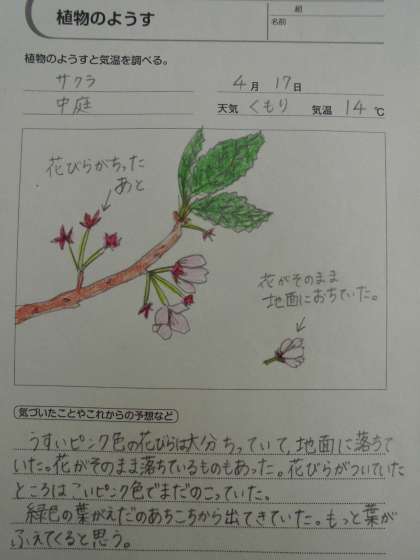 植物のようす
組
名前
植物のようすと気温を調べる。
サクラ
4月 17日
中庭
天気 くもり 気温 14℃
花びらがちった
あと
花がそのまま
地面におちていた。
気づいたことやこれからの予想など
うすいピンク色の花びらは大分ちっていて,地面に落ちて
いた。花がそのまま落ちているものもあった。花びらがついていた
ところはこいピンク色でまだのこっていた。
緑色の葉がえだのあちこちから出てきていた。もっと葉が
ふえてくると思う。